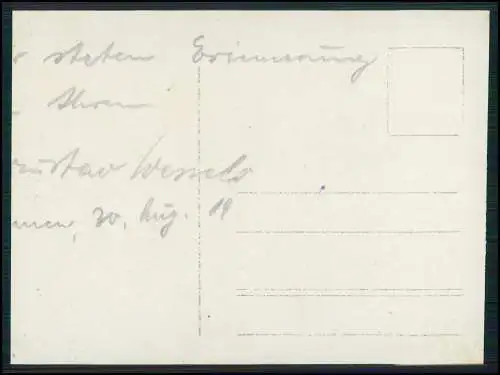 r steten Erinnerung
Ihren
ustav Wessels
men, 20. Aug. 19